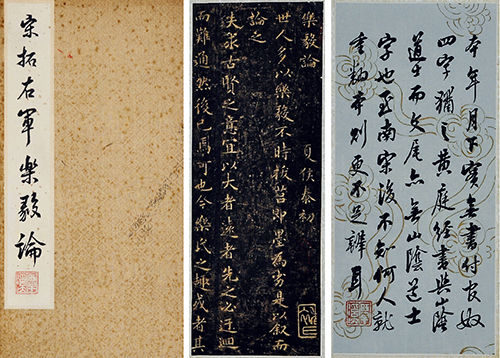 宋拓右軍樂毅論
樂毅論 夏侯泰初
世人多以樂毅不時拔莒即墨為劣是以叙而
論之
夫求古賢之意宜以大者遠者先之必迂迴
而難通然後已焉可也今樂氏之趣或者其
本年月下實無書付官奴
四字猶之黃庭經書與山陰
道士而文尾亦無山陰道士
字也至南宋後不知何人就
本則更不足辨耳